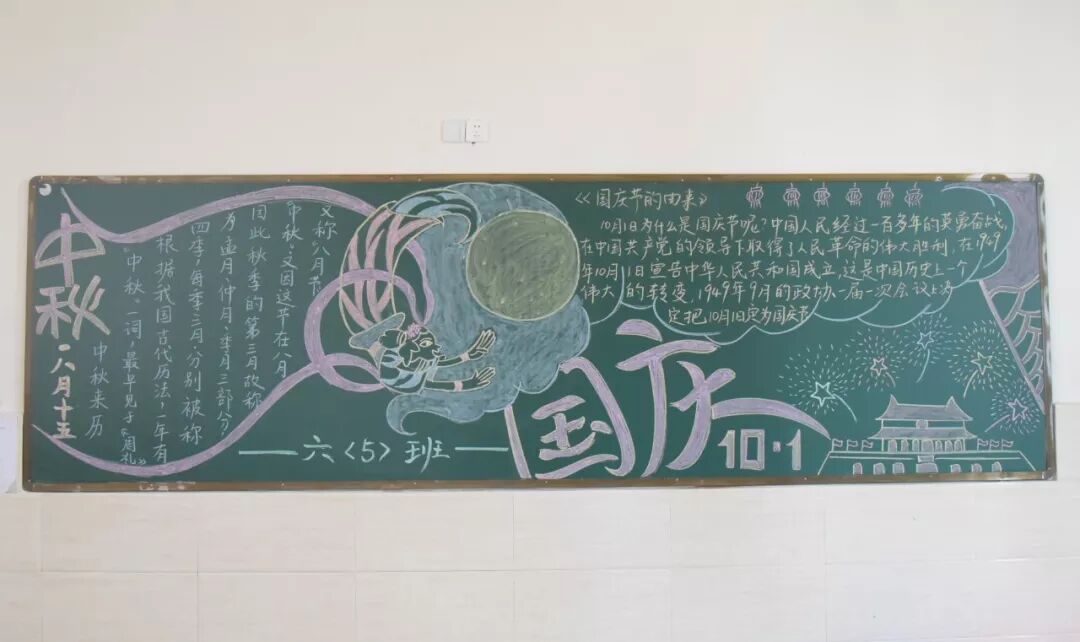 中秋·八月十五
中秋来历
“中秋”一词,最早见于《周礼》
根据我国古代历法,一年有
四季,每季三月,分别被称
为孟月、仲月、季月三部分,
因此秋季的第三月改称
“中秋”,又因这节在八月
又称“八月节”
六〈5〉班
《国庆节的由来》
10月1日为什么是国庆节呢?中国人民经过一百多年的英勇奋战,
在中国共产党的领导下取得了人民革命的伟大胜利.在1949
年10月1日宣告中华人民共和国成立.这是中国历史上一个
伟大的转变,1949年9月的政协一届一次会议上决
定把10月1日定为国庆节
国庆
10·1